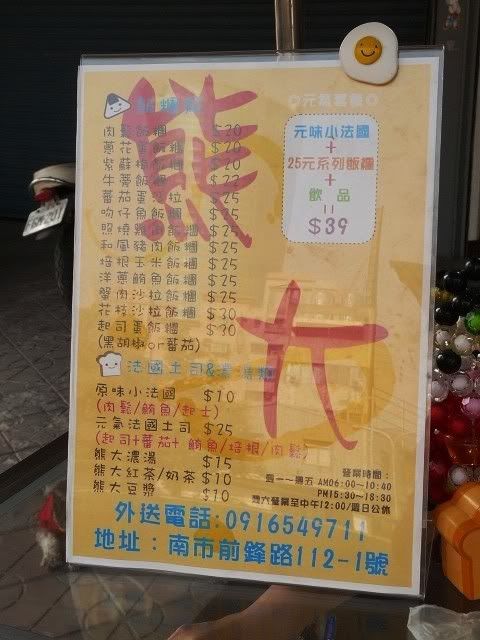 熊大
飯糰類
肉鬆飯糰 $20
蔥花蛋飯糰 $20
紫蘇梅飯糰 $20
牛蒡 $22
$25
吻仔魚 飯糰 $25
照燒雞肉飯糰 $25
和風豬肉飯糰 $25
培根玉米飯糰 $25
洋蔥鮪魚飯糰 $25
蟹肉沙拉飯糰 $25
花枝沙拉飯糰 $30
起司蛋飯糰
(黑胡椒or蕃茄)
法國土司&濃湯類
原味小法國 $10
(肉鬆/鮪魚/起士)
元氣法國土司 $25
(起司+蕃茄+鮪魚/培根/肉鬆)
熊大濃湯 $15
熊大紅茶/奶茶 $10
熊大豆漿 $10
元氣套餐
元味小法國
+
25元系列飯糰
+
飲品
=
$39
營業時間:
週一~週五 AM06:00-10:40
PM15:30-18:30
週六營業至中午12:00/週日公休
外送電話:0916549711
地址:南市前鋒路112-1號